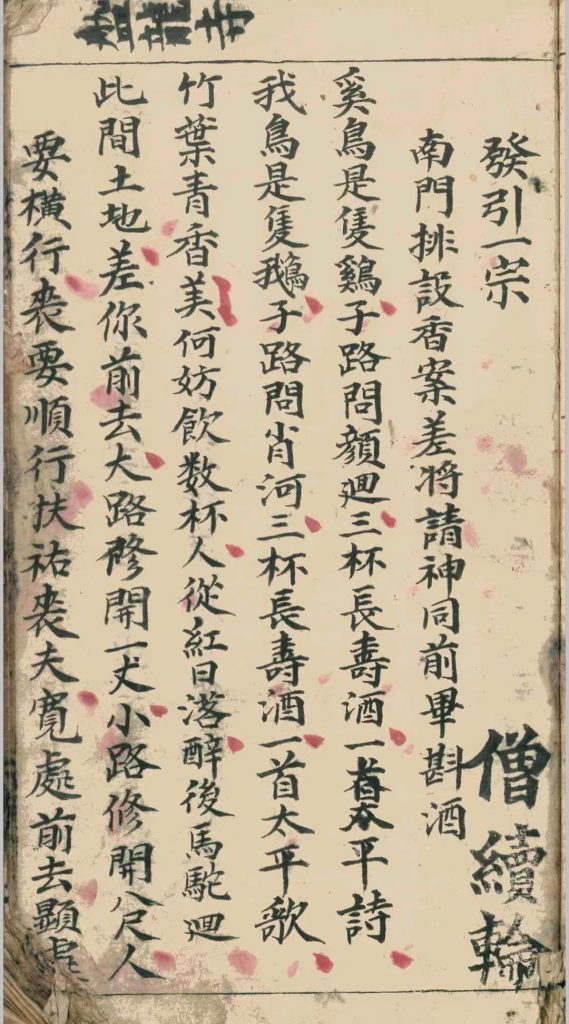 發引一宗
僧續輪
南門排設香案差將請神同前畢斟酒
奚鳥是隻鷄子路問顏迴三杯長壽酒一首太平詩
我鳥是隻鵝子路問肖河三杯長壽酒一首太平歌
竹葉青香美何妨飲数杯人從紅日落醉後馬駝迴
此間土地差你前去大路修開一丈小路修開八尺人
要橫行丧要順行扶祐丧夫寬處前去顯